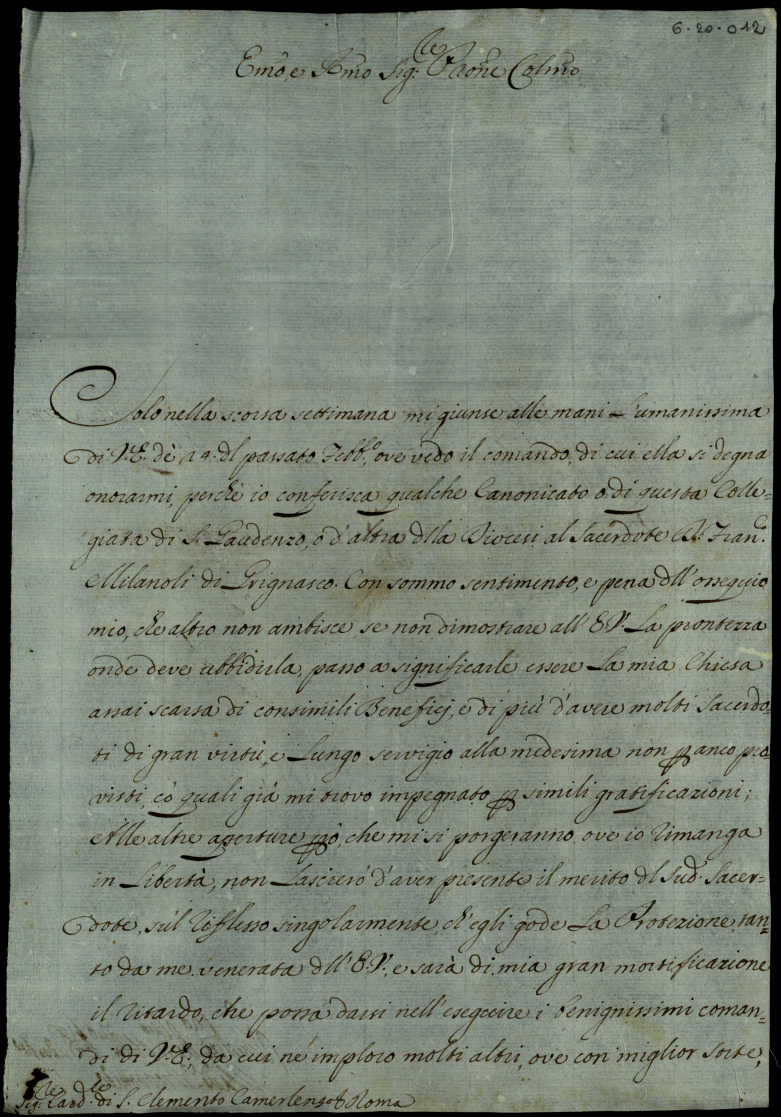 6.20.012
Emo, e Rmo Sig.r Pron̄e Colmo
Solo nella scorsa settimana mi giunse alle mani l'umanissima
di V.E. de' 14. dl passato Febb.o, ove vedo il comando, di cui ella si degna
onorarmi, perchè io conferisca qualche Canonicato o di questa Colle=
giata di S. Gaudenzo, o d'altra dlla Diocesi al Sacerdote D. Fran.o
Milanoli di Grignasco. Con sommo sentimento, e pena dll'ossequio
mio, che altro non ambisce se non dimostrare all'E.V. la prontezza
onde deve ubbidirla, passo a significarle essere la mia Chiesa
assai scarsa di consimili Beneficj, e di più d'avere molti Sacerdo=
ti di gran virtù, e lungo servigio alla medesima non p anco pro=
visti, co' quali già mi trovo impegnato p simili gratificazioni;
Alle altre aperture pò, che mi si porgeranno, ove io rimanga
in libertà, non lascierò d'aver presente il merito dl Sud.o Sacer=
dote, sul riflesso singolarmente, ch'egli gode la Protezione tan=
to da me venerata dll'E.V., e sarà di mia gran mortificazione
il ritardo, che possa darsi nell'eseguire i benignissimi coman=
di di V.E., da cui ne imploro molti altri, ove con miglior sorte,
Sig.r Card.le di S. Clemente Camerlengo Roma